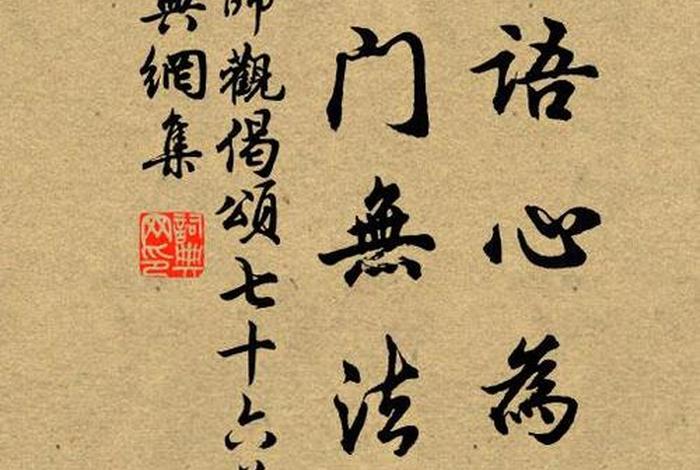 語心為
門無法
師觀偈頌七十六
典網集
詞典网印